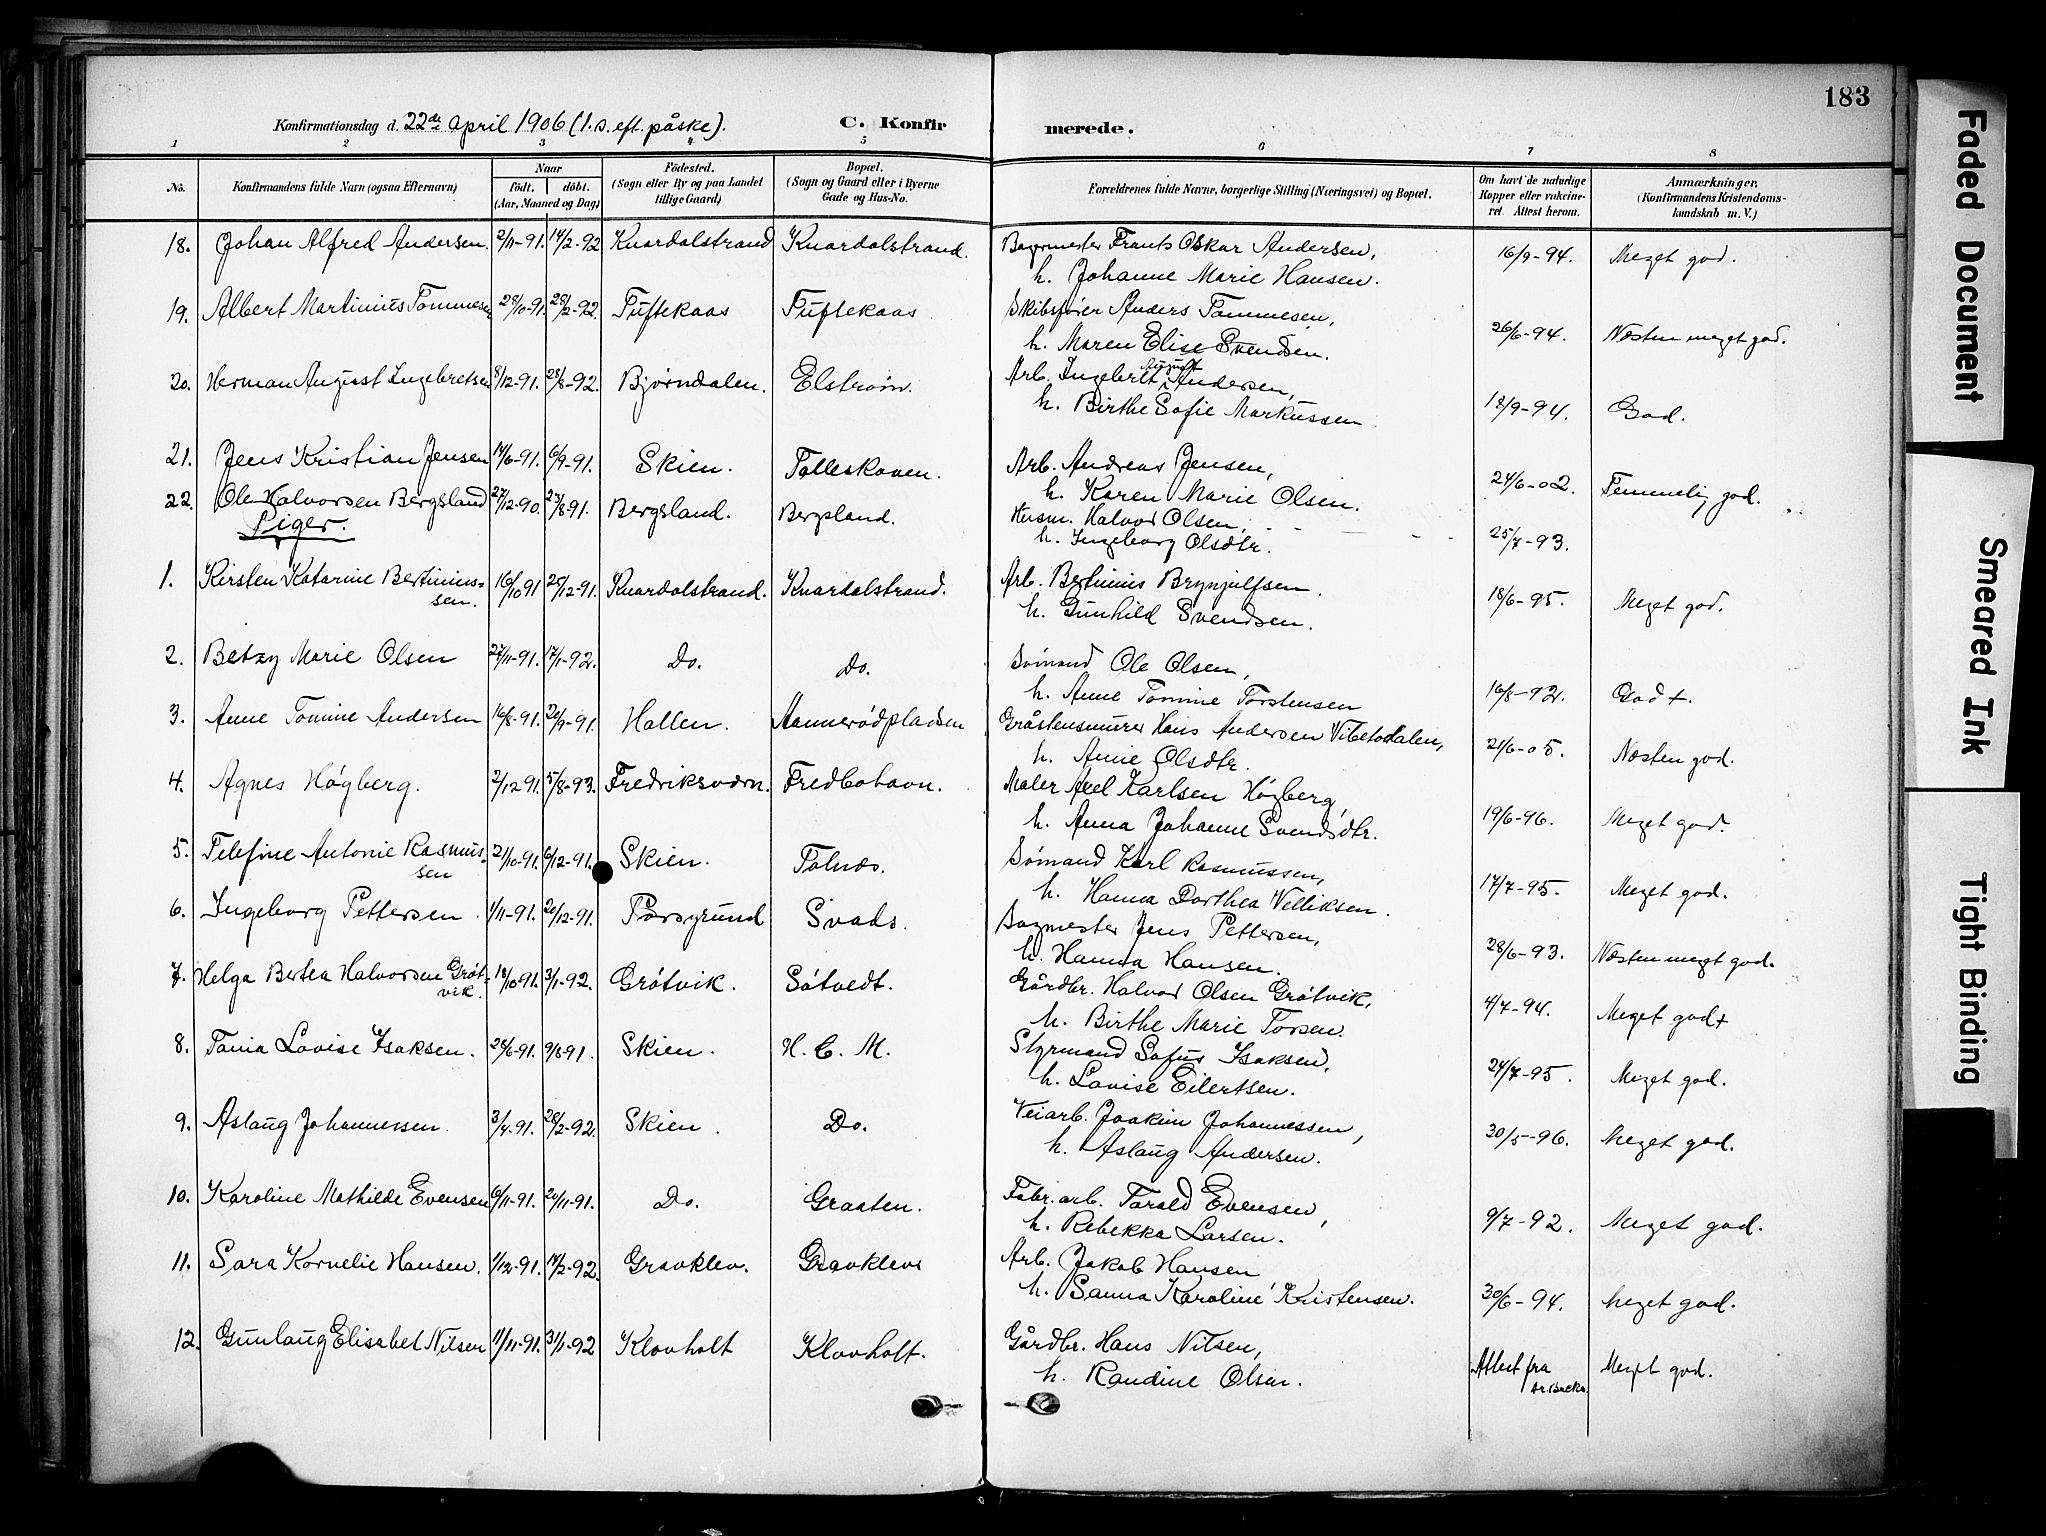 183
Konfirmationsdag d. 22de April 1906 (1. s. eft. påske). C. Konfirmerede.
1 2 3 4 5 6 7 8
No. Konfirmandens fulde Navn (ogsaa Efternavn) Naar født. døbt. (Aar, Maaned og Dag) Fødested. (Sogn eller By og paa Landet tillige Gaard) Bopæl. (Sogn og Gaard eller i Byerne Gade og Hus-No. Forældrenes fulde Navne, borgerlige Stilling (Næringsvei) og Bopæl. Om havt de naturlige Kopper eller vakcineret. Attest herom. Anmærkninger. (Konfirmandens Kristendomskundskab m. V.)
18. Johan Alfred Andersen. 2/11-91. 14/2-92 Knardalstrand Knardalstrand. Bagermester Frants Oskar Andersen, 16/9-94. Meget god.
h. Johanne Marie Hansen.
19. Albert Martinius Tommesen 28/10-91. 28/2-92. Tuftekaas Tuftekaas Skibsfører Anders Tommesen, 26/6-94. Næsten meget god.
h. Maren Elise Svendsen.
20. Herman August Ingebretsen 8/12-91. 28/8-92. Bjørndalen. Elstrøm. Arb. Ingebret August Andersen, 18/9-94. God.
h. Birthe Sofie Markussen
21. Jens Kristian Jensen 14/6-91. 6/9-91. Skien. Tolleskoven. Arb. Andreas Jensen, 24/6-02. Temmelig god.
h. Karen Marie Olsen.
22. Ole Halvorsen Bergsland 27/12-90. 23/8-91. Bergsland. Bergsland. Husm. Halvor Olsen, 25/7-93.
h. Ingeborg Olsdtr.
Piger.
1. Kirsten Katarine Bertiniussen. 16/10 91 25/12-91. Knardalstrand. Knardalstrand. Arb. Bertinius Brynjulfsen. 18/6-95. Meget god.
h. Gunhild Svendsen.
2. Betzy Marie Olsen 27/11-91. 17/1-92. Do. Do. Sømand Ole Olsen, 16/8-92. God +.
h. Anne Tomine Torstensen
3. Anne Tomine Andersen 16/8-91. 20/9-91. Hollen. Aannerødpladsen Gråstensmurer Hans Andersen Vibetodalen, 21/6-05. Næsten god.
h. Anne Olsdtr.
4. Agnes Høgberg. 2/12 91. 5/8-93. Fredriksværn. Fredbohavn. Maler Axel Karlsen Høgberg, 19/6-96. Meget god.
h. Anna Johanne Svendsdtr.
5. Telefine Antonie Rasmussen 2/10-91. 6/12-91. Skien. Tolnæs. Sømand Karl Rasmussen, 17/7-95. Meget god.
h. Hanna Dorthea Velliksen.
6. Ingeborg Pettersen. 1/11-91. 20/12-91. Porsgrund Svads. Sagmester Jens Pettersen, 28/6-93. Næsten meget god.
h. Hanna Hansen.
7. Helga Bertea Halvorsen Grøtvik. 18/10-91. 3/1-92. Grøtvik. Søtvedt. Gårdbr. Halvor Olsen Grøtvik, 4/7-94. Meget god+
h. Birthe Marie Torsen.
8. Tania Lovise Isaksen. 28/6-91. 9/8-91. Skien. H. C. M. Styrmand Sofus Isaksen, 24/7-95. Meget god.
h. Lovise Eilertsen.
9. Aslaug Johannessen. 3/4-91. 28/2-92. Skien. Do. Veiarb. Joakim Johannessen, 30/5-96. Meget god.
h. Aslaug Andersen.
10. Karoline Mathilde Evensen 6/11-91. 20/11-91. Do. Graaten. Fabr. arb. Tarald Evensen, 9/7-92. Meget god.
h. Rebekka Larsen.
11. Sara Kornelie Hansen. 1/12-91. 14/2-92. Gravklev. Gravklev Arb. Jakob Hansen 30/6-94. Meget god.
h. Sanna Karoline Kristensen.
12. Gunlaug Elisabet Nilsen 11/11-91. 31/1-92 Klovholt Klovholt. Gårdbr. Hans Nilsen, Attest fra Meget god.
h. Randine Olsen.
Faded Document
Smeared Ink
Tight Binding